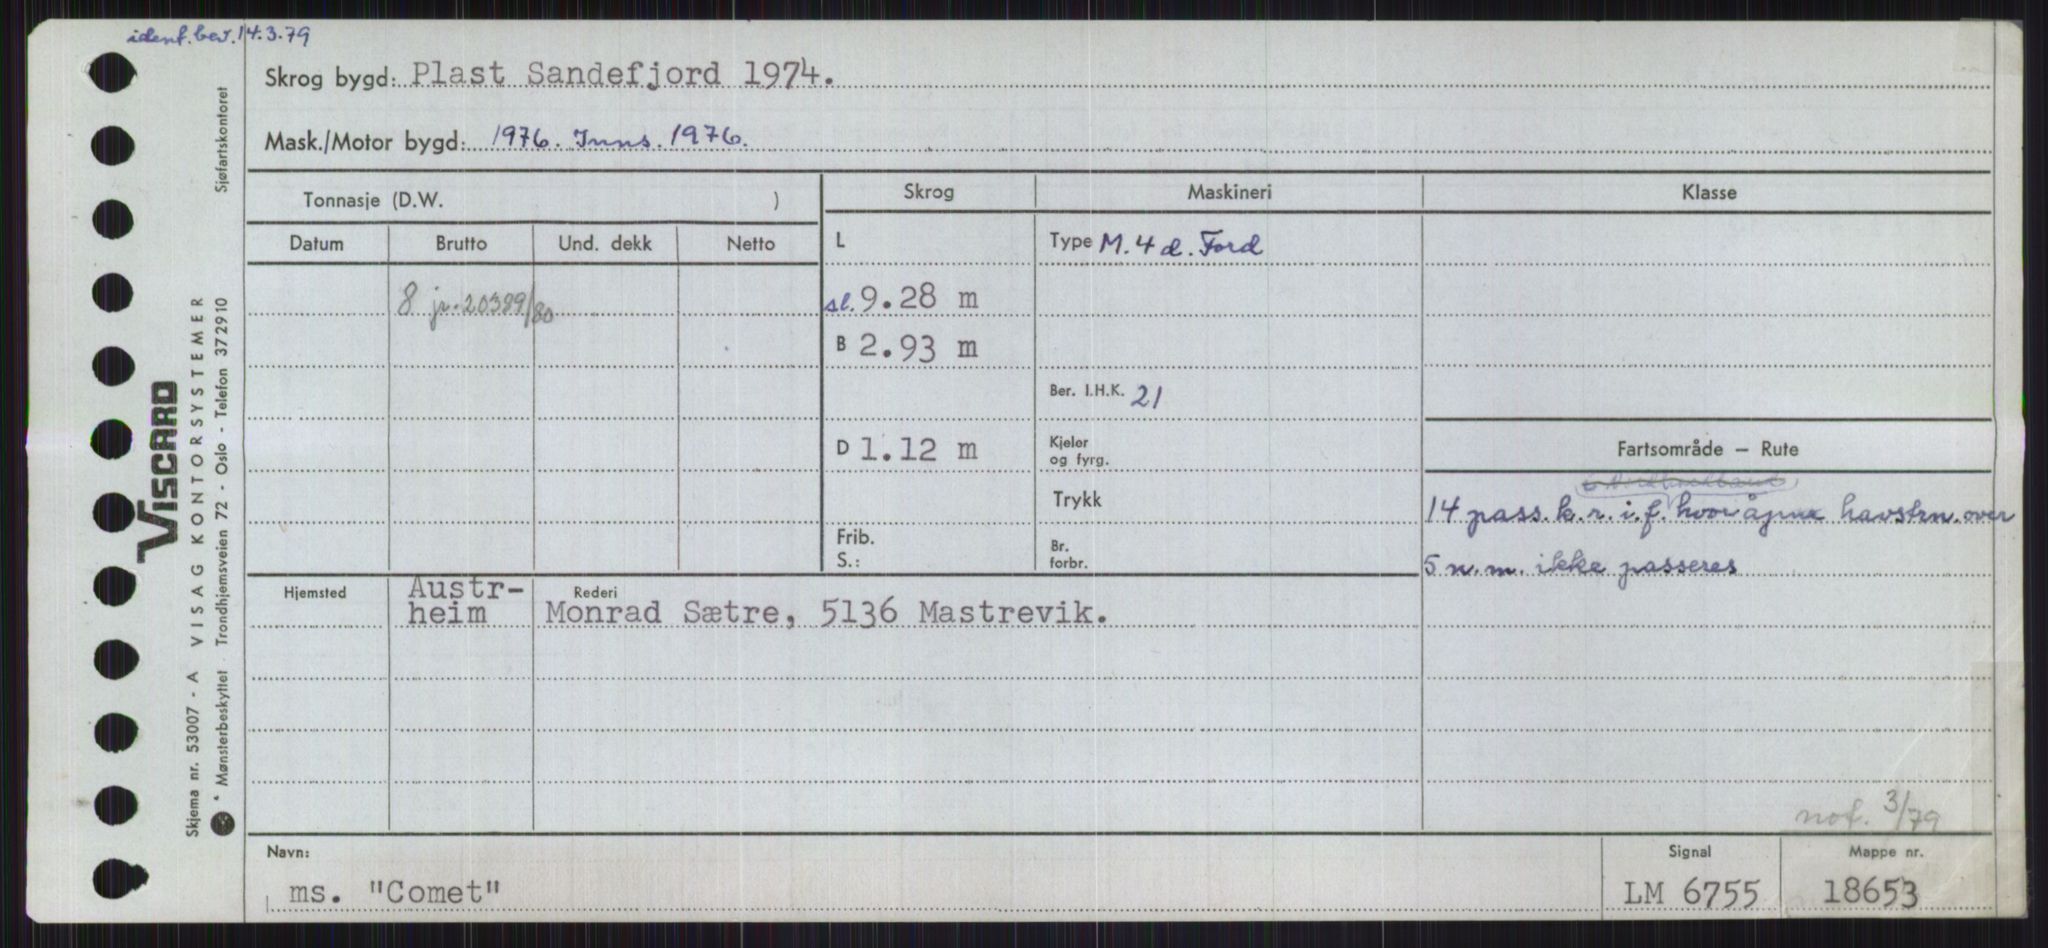 ident.bev. 14.3.79
Skrog bygd: Plast Sandefjord 1974.
Mask./Motor bygd: 1976. Inns. 1976.
Sjøfartskontoret
Tonnasje (D.W. )
Skrog
Maskineri
Klasse
Datum
Brutto
Und. dekk
Netto
L
Type M. 4 d. Ford
8 jr. 20389/80
sl. 9.28 m
B 2.93 m
Ber. I.H.K. 21
D 1.12 m
Kjeler
og fyrg.
Fartsområde – Rute
Trykk
14 pass. k.r.i.f. hvor åpne havstrn. over
Frib.
S.:
Br.
forbr.
5 n.m. ikke passeres
Hjemsted
Austr-
heim
Rederi
Monrad Sætre, 5136 Mastrevik.
nof. 3/79
Navn:
ms. "Comet"
Signal
LM 6755
Mappe nr.
18653
VISCARD
Skjema nr. 53007 - A VISAG KONTORSYSTEMER
* Mønsterbeskyttet Trondhjemsveien 72 - Oslo - Telefon 372910